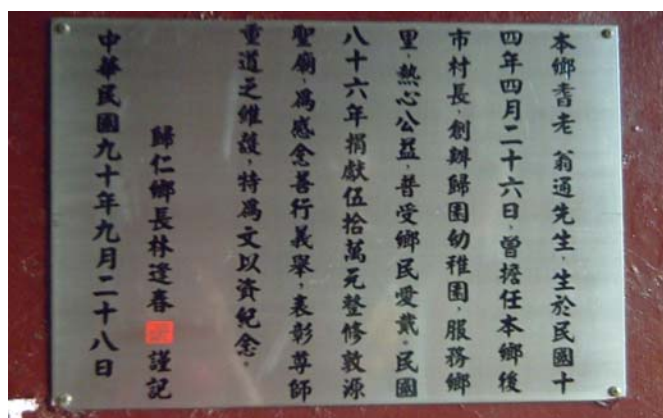 本鄉耆老 翁通先生，生於民國十
四年四月二十六日，曾擔任本鄉後
市村長，創辦歸園幼稚園，服務鄉
里，熱心公益，普受鄉民愛戴。民國
八十六年捐獻伍拾萬元整修敦源
聖廟，為感念善行義舉，表彰尊師
重道之維護，特為文以資紀念。
歸仁鄉長林逢春 謹記
中華民國九十年九月二十八日